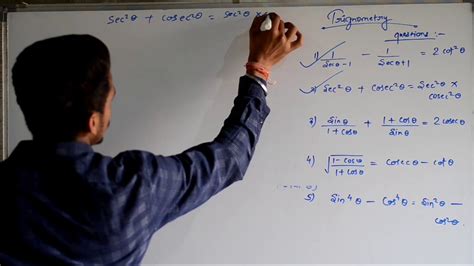 sec²θ + cosec²θ = sec²θ ×
Trignometry
questions :-
1) 1/(secθ-1) - 1/(secθ+1) = 2cot²θ
2) sec²θ + cosec²θ = sec²θ ×
cosec²θ
3) sinθ/(1+cosθ) + (1+cosθ)/sinθ = 2cosecθ
4) √((1-cosθ)/(1+cosθ)) = cosecθ - cotθ
5) sin⁴θ - cos⁴θ = sin²θ -
cos²θ.